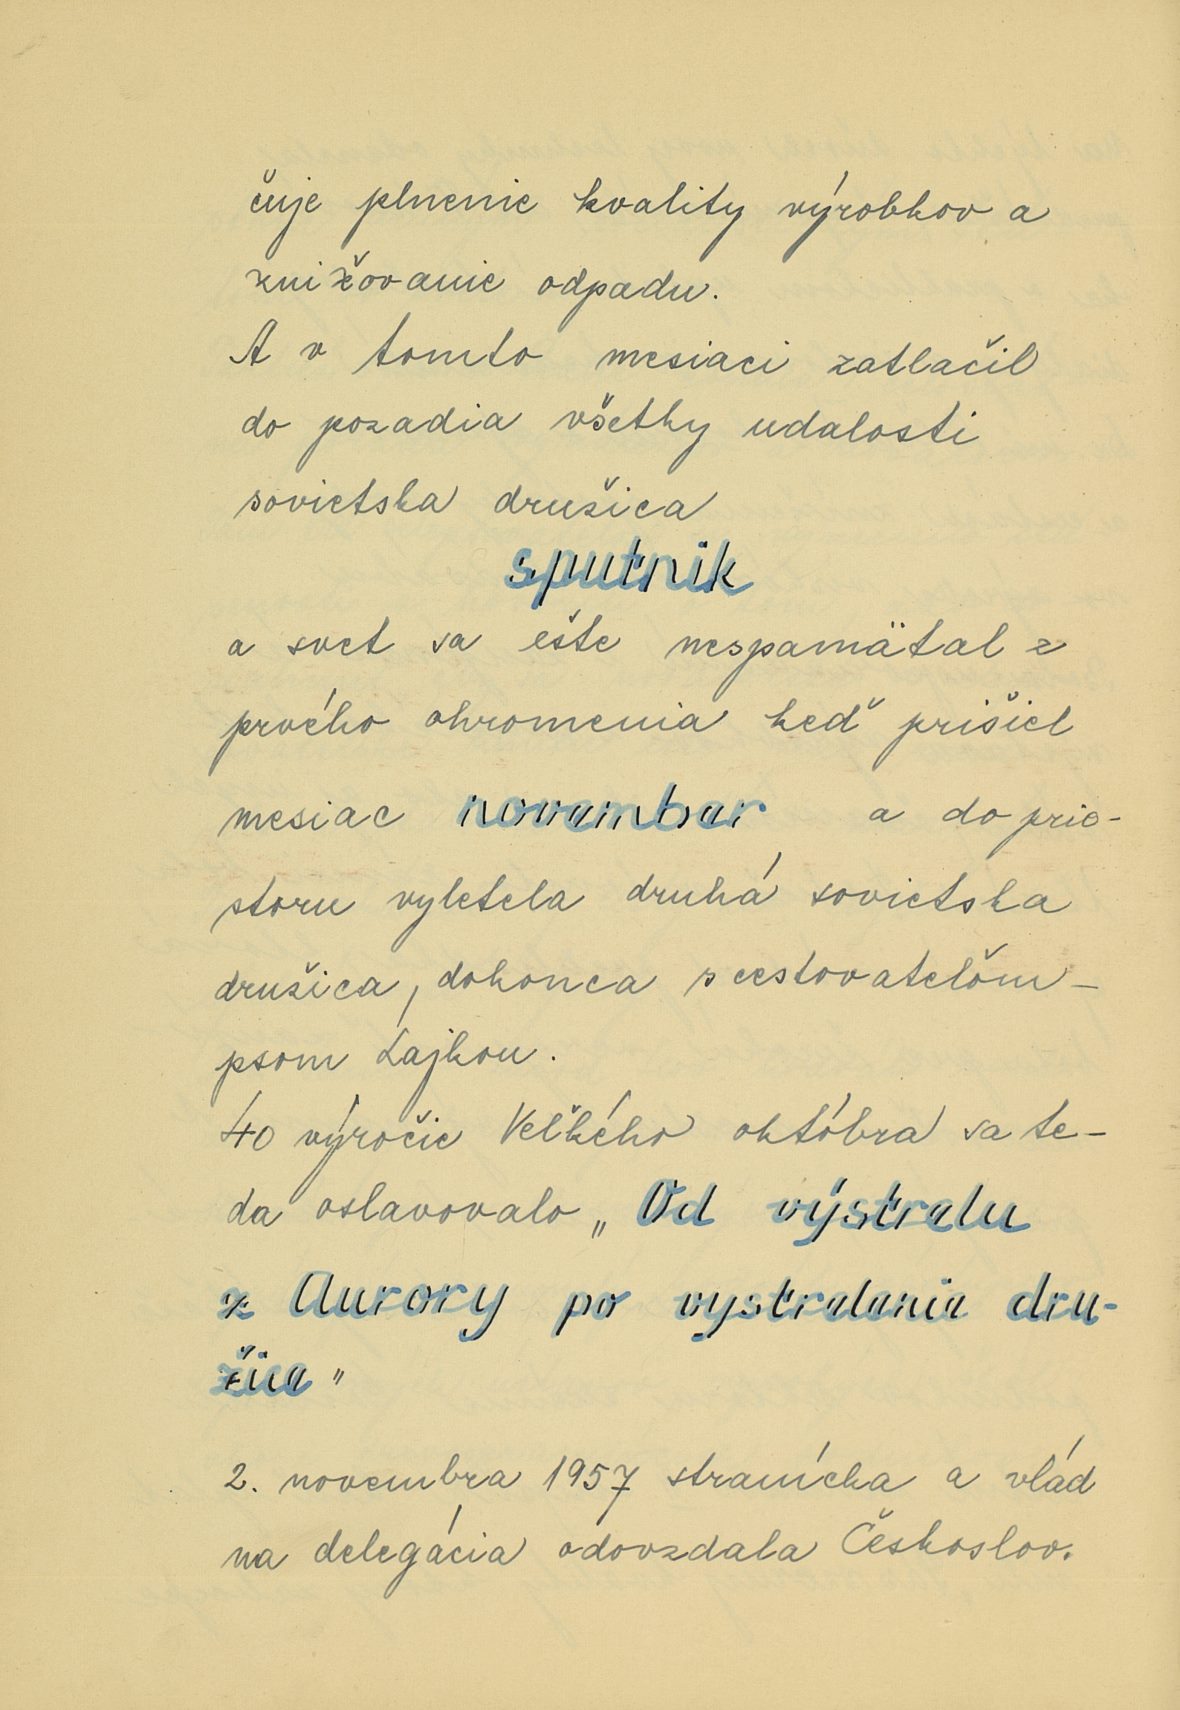 čuje plnenie kvality výrobkov a
znižovanie odpadu.
A v tomto mesiaci zatlačil
do pozadia všetky udalosti
sovietska družica
sputnik
a svet sa ešte nespamätal z
prvého ohromenia keď prišiel
mesiac november a do prie-
storu vyletela druhá sovietska
družica, dokonca s cestovateľom -
psom Lajkou.
40 výročie Veľkého októbra sa te-
da oslavovalo „Od výstrelu
z Aurory po vystrelenie dru-
žice"
2. novembra 1957 stranícka a vlád
na delegácia odovzdala Českoslov.